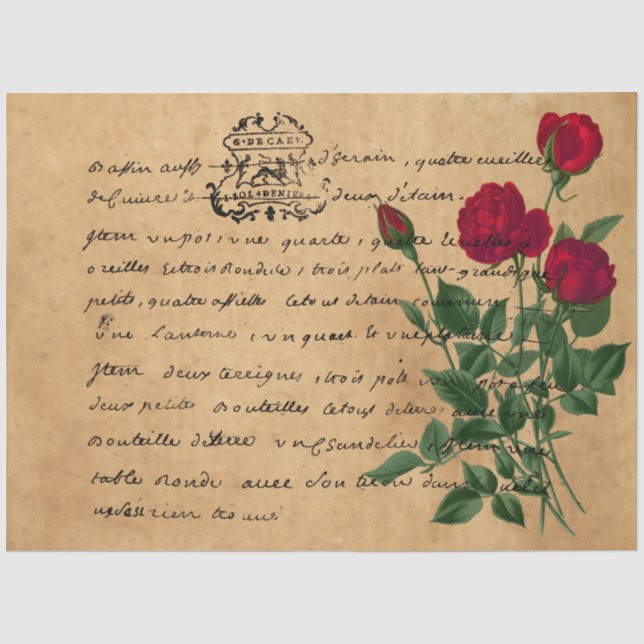 G·DE CAEN
SOL 4 DENIE
Bassin aussi d'Serain, quatre cueilliers
de Cuivre et deux d'étain.
Item un pot, une quarte, quatre Ecuelles à
oreilles Et trois Rondes, trois plats tant grands que
petits, quatre assiettes Le tout d'étain commun
une Lanterne, un quart Et une
Item deux tereignes, trois pots un pot a feu
deux petits Bouteilles Le tout de terre avec une
Bouteille de terre un Chandelier, Item une
table Ronde avec Son tiron dans
rien trouvé